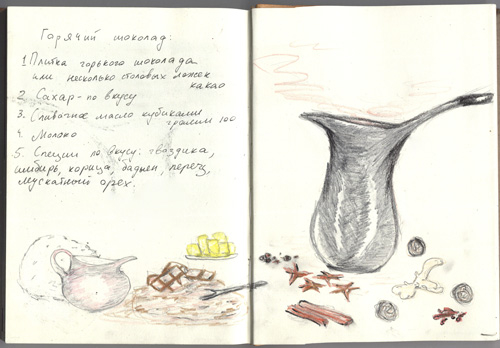 Горячий шоколад:
1 Плитка горького шоколада
или несколько столовых ложек
какао
2. Сахар - по вкусу
3. Сливочное масло кубиками
грамм 100
4. Молоко
5. Специи по вкусу: гвоздика,
имбирь, корица, бадьян, перец,
мускатный орех.